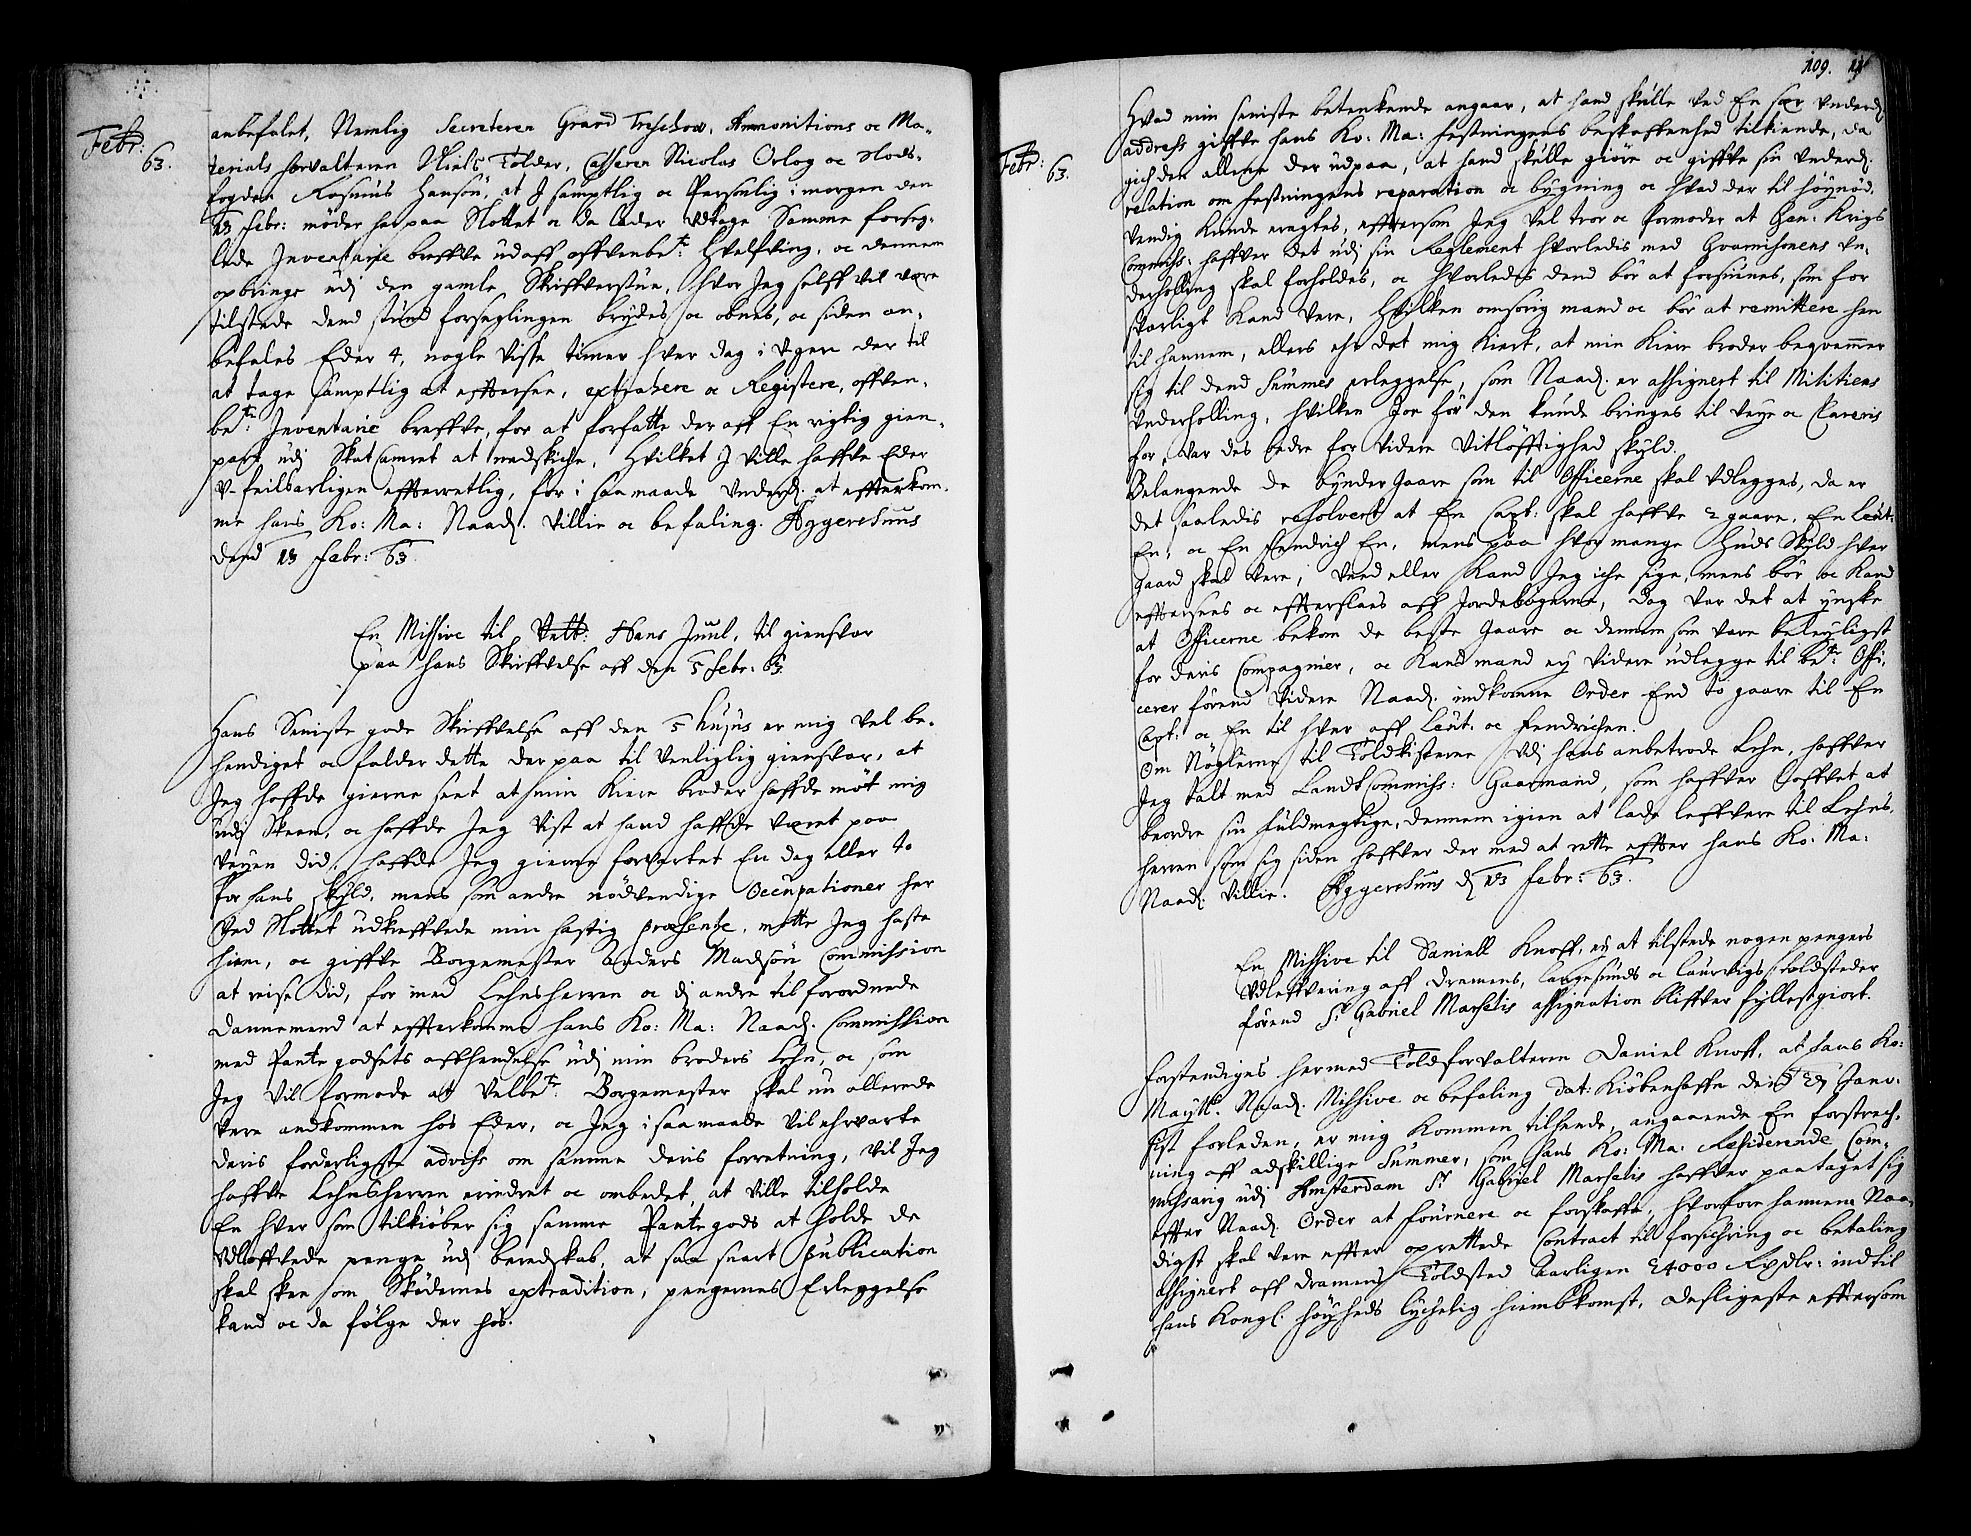 Febr:
63.
anbefalet, Nemlig Secreteren Grand Treschow, Ammonitions oc Ma-
terials forvalteren Niels Tolder, Casseren Nicolas Orlog oc Slods-
fogden Rasmus Hansøn, at I samptlig oc Personlig i morgen den
13 Febr: møder her paa Slottet oc da lader udtage Samme forseg-
lede Inventarie breffve udaff offvenbe.te Hvelfving, oc dennem
opbringe udj den gamle Skriffverstue, hvor Jeg selff vil være
tilstede dend stund forseglingen brydes oc obnes, oc siden an-
befales Eder 4, nogle visse timer hver dag i Ugen der til
at tage samptlig at effttersee, extrahere oc Registere, offven-
be.te Inventarie breffve, for at forfatte der aff En rigtig gien-
part udj Skatcamret at nedskiche, Hvilket I ville haffve Eder
u-feilbarligen effterretlig, for i saa maade underd. at effterkom-
me hans Ko: Ma: Naad. villie oc befaling. Aggershuus
dend 13 Febr: 63.
En Missive til Velb: Hans Juul, til giensvar
paa hans Skriffvelse aff den 5 Febr: 63.
Hans Seniste gode Skriffvelse aff den 5 hujus er mig vel be-
hendiget oc falder dette der paa til venligtig giensvar, at
Jeg haffde gierne seet at min kiere broder haffde møt mig
udj Skeen, oc haffde Jeg vist at hand haffde været paa
veyen did, haffde Jeg gierne forvartet En dag eller to
for hans skyld, mens som andre nødvendige Occupationer her
ved Slottet udkreffvede min hastig præsentze, motte Jeg haste
hiem, oc giffve Borgemester Anders Madsøn Commission
at reise did, for med Lehnsherren oc dj andre tilforordnede
Dannemend at effterkomme hans Ko: Ma: Naad. Commission
med Pantegodsets affhendelse udj min broders Lehn, oc som
Jeg vil formode at velbe.te Borgemester skal nu allerede
være andkommen hos Eder, oc Jeg i saa maade vil ehrvarte
deris forderligste advise om samme deris forretning, vil Jeg
haffve Lehnsherren erindret oc ombedet, at ville tilholde
En hver som tilkiøber sig samme Pantegods at holde de
udloffvede penge udj beredskab, at saa snart publication
skal skee om Skødernes extradition, pengernes Erleggelse
kand oc da følge der hos.
109.
Febr: 63.
Hvad min seniste betenkende angaar, at hand skulle ved En sær underd.
addresse giffve hans Ko: Ma: festningens beskaffenhed tilkiende, da
gich det allene der ud paa, at hand skulle giøre oc giffve sin underd.
relation om festningens reparation oc bygning oc hvad der til høynød-
vendig kunde eragtes, efftersom Jeg vel tror oc formoder at Gen: Krigs
Commiss: haffver det udj sin Reglement hvorledis med Gvarnisonens un-
derholling skal forholdes, oc hvorledes dend bør at forsiunes, som for
svarligt kand vere, Hvilken omsorig mand oc bør at remittere hen
til hannem, ellers ehr det mig kiert, at min kiere broder beqvemmer
sig til dend Summes erleggelse, som Naad. er assignert til Militiens
underholling, hvilken Jo før den kunde bringes til veye oc Clareris
for, var des bedre for videre vitløfftighed skyld.
Belangende de bønder Gaare som til Officerne skal udlegges, da er
det saaledis resolvert at En Capt: skal haffve 2 gaare, En Leut:
En, oc En Fendrich En, mens paa hvor mange huds skyld hver
Gaard skal vere, veed eller kand Jeg iche sige, mens bør oc kand
efftersees oc effterslaes aff Jordebøgerne, dog var det at ynske
at Officerne bekom de beste Gaare oc dennem som vare beleyligst
for deris Compagnier, oc kand mand ey videre udlegge til be.te Offi-
cerer førend videre Naad. indkomne Order End to gaare til En
Capt: oc En til hver aff Leut: oc Fendrichen.
Om Nøglerne til Toldkisterne udj hans anbetrode Lehn, haffver
Jeg talt med LandtCommiss: Gaarmand, som haffver Loffvet at
beordre sin fuldmegtige, dennem igien at lade leffvere til Lehns-
herren som sig siden haffver der med at rette effter hans Ko: Ma:
Naad. villie. Aggershuus d. 13 Febr: 63.
En Missive til Daniell Knoff, ey at tilstede nogen pengers
Udleffvering aff Dramens, Langesunds oc Laurvigs toldsteder
førend Sr. Gabriel Marselis assignation bliffver fyllestgiort.
Forstendiges hermed Toldforvalteren Daniel Knoff, at hans Ko:
Maytt. Naad. Missive oc befaling dat: Kiøbenhaffn dend 29 Janv:
sist forleden, er mig kommen tilhende, angaaende En forstrech-
ning aff adskillige Summer, som hans Ko: Ma: Residerende Com-
missarig udj Amsterdam Sr. Gabriel Marselis haffver paataget sig
effter Naad. Order at fournere oc forskaffe, hvorfore hannem Naa-
digst skal vere effter oprettede Contract til forsichring oc betaling
Assignert aff Dramens Toldsted Aarligen 24000 Rixdlr: indtil
hans Kongl. høyheds lychelig hiembkomst, desligeste efftersom